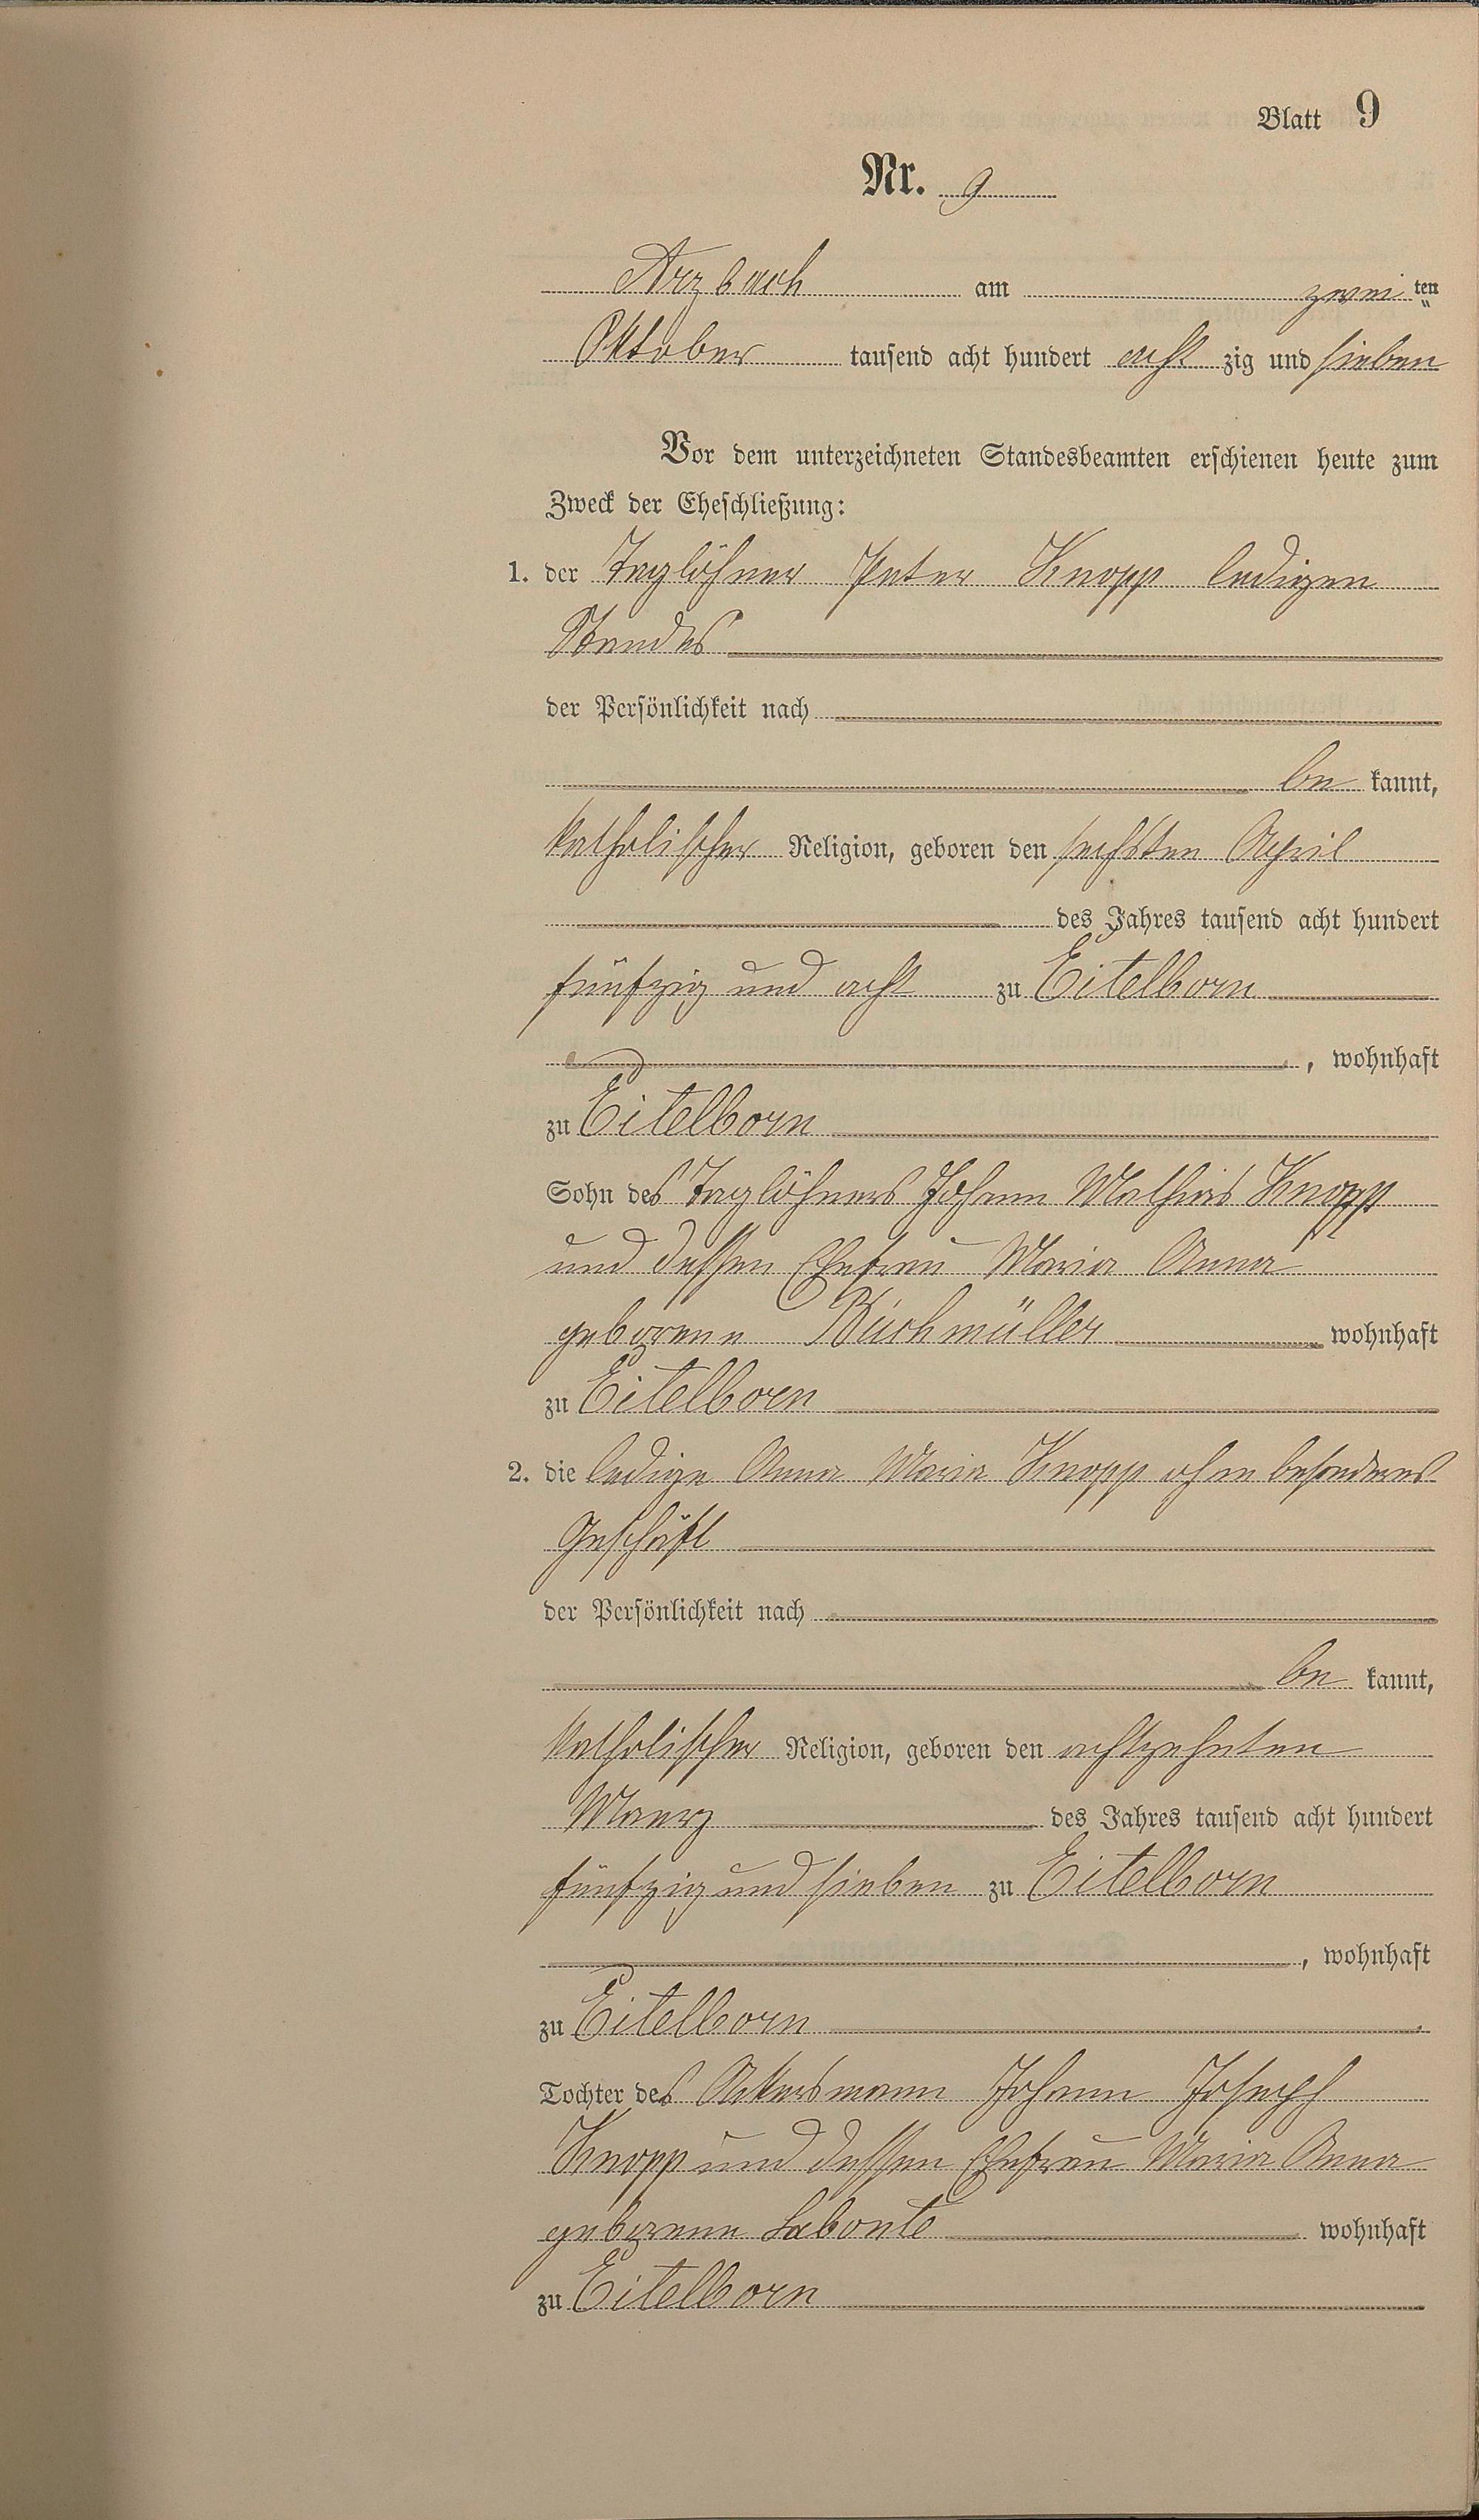 Blatt 9
Nr. 9
Arzbach am zwei ten
Oktober tausend acht hundert acht zig und sieben
Vor dem unterzeichneten Standesbeamten erschienen heute zum
Zweck der Eheschließung:
1. der Taglöhner Peter Knopp ledigen
Standes
der Persönlichkeit nach
be kannt,
katholischer Religion, geboren den sechsten April
des Jahres tausend acht hundert
fünfzig und acht zu Eitelborn
, wohnhaft
zu Eitelborn
Sohn des Taglöhners Johann Mathias Knopp
und dessen Ehefrau Maria Anna
geborene Buchmüller wohnhaft
zu Eitelborn
2. die ledige Anna Maria Knopp ohne besonderes
Geschäft
der Persönlichkeit nach
be kannt,
katholischer Religion, geboren den achtzehnten
Maerz des Jahres tausend acht hundert
fünfzig und sieben zu Eitelborn
, wohnhaft
zu Eitelborn
Tochter des Ackersmann Johann Joseph
Knopp und dessen Ehefrau Maria Anna
geborene Labonte wohnhaft
zu Eitelborn